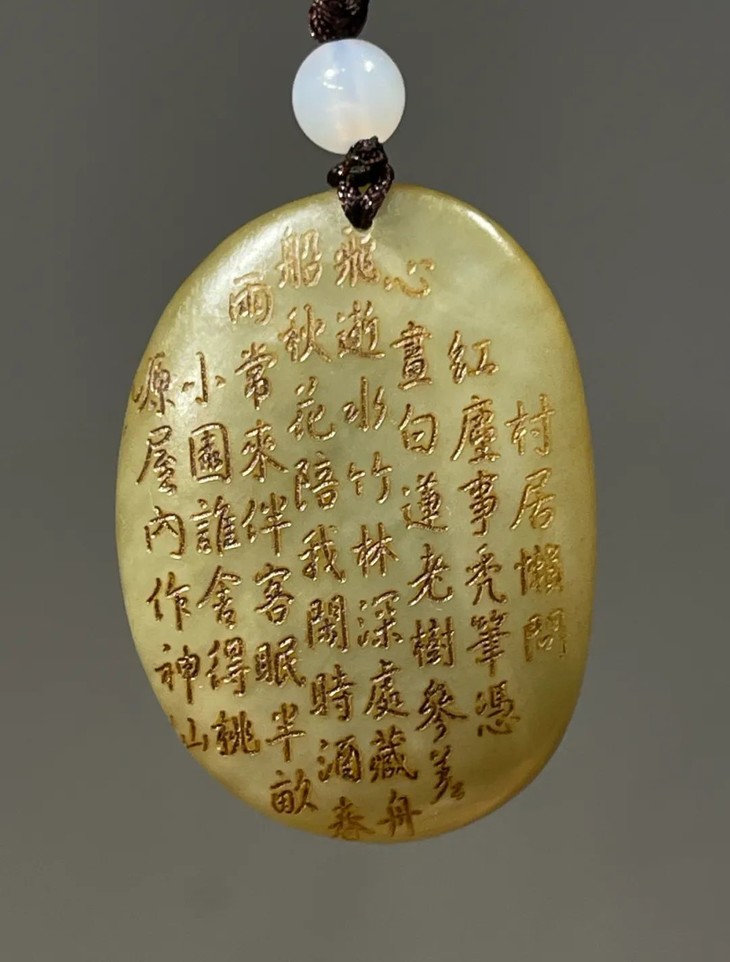 村居懶問
紅塵事禿筆憑
心畫白蓮老樹參差
飛逝水竹林深處藏舟
船秋花陪我閑時酒春
雨常來伴客眠半畝
小園誰舍得桃
源屋內作神仙